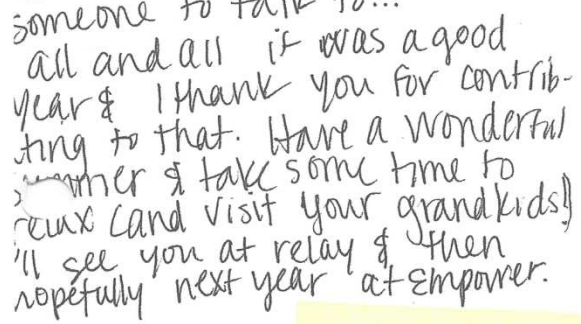 someone to talk to...
all and all it was a good
year & I thank you for contrib-
ting to that. Have a wonderful
mmer & take some time to
relax (and visit your grandkids!)
'll see you at relay & then
hopefully next year at Empower.